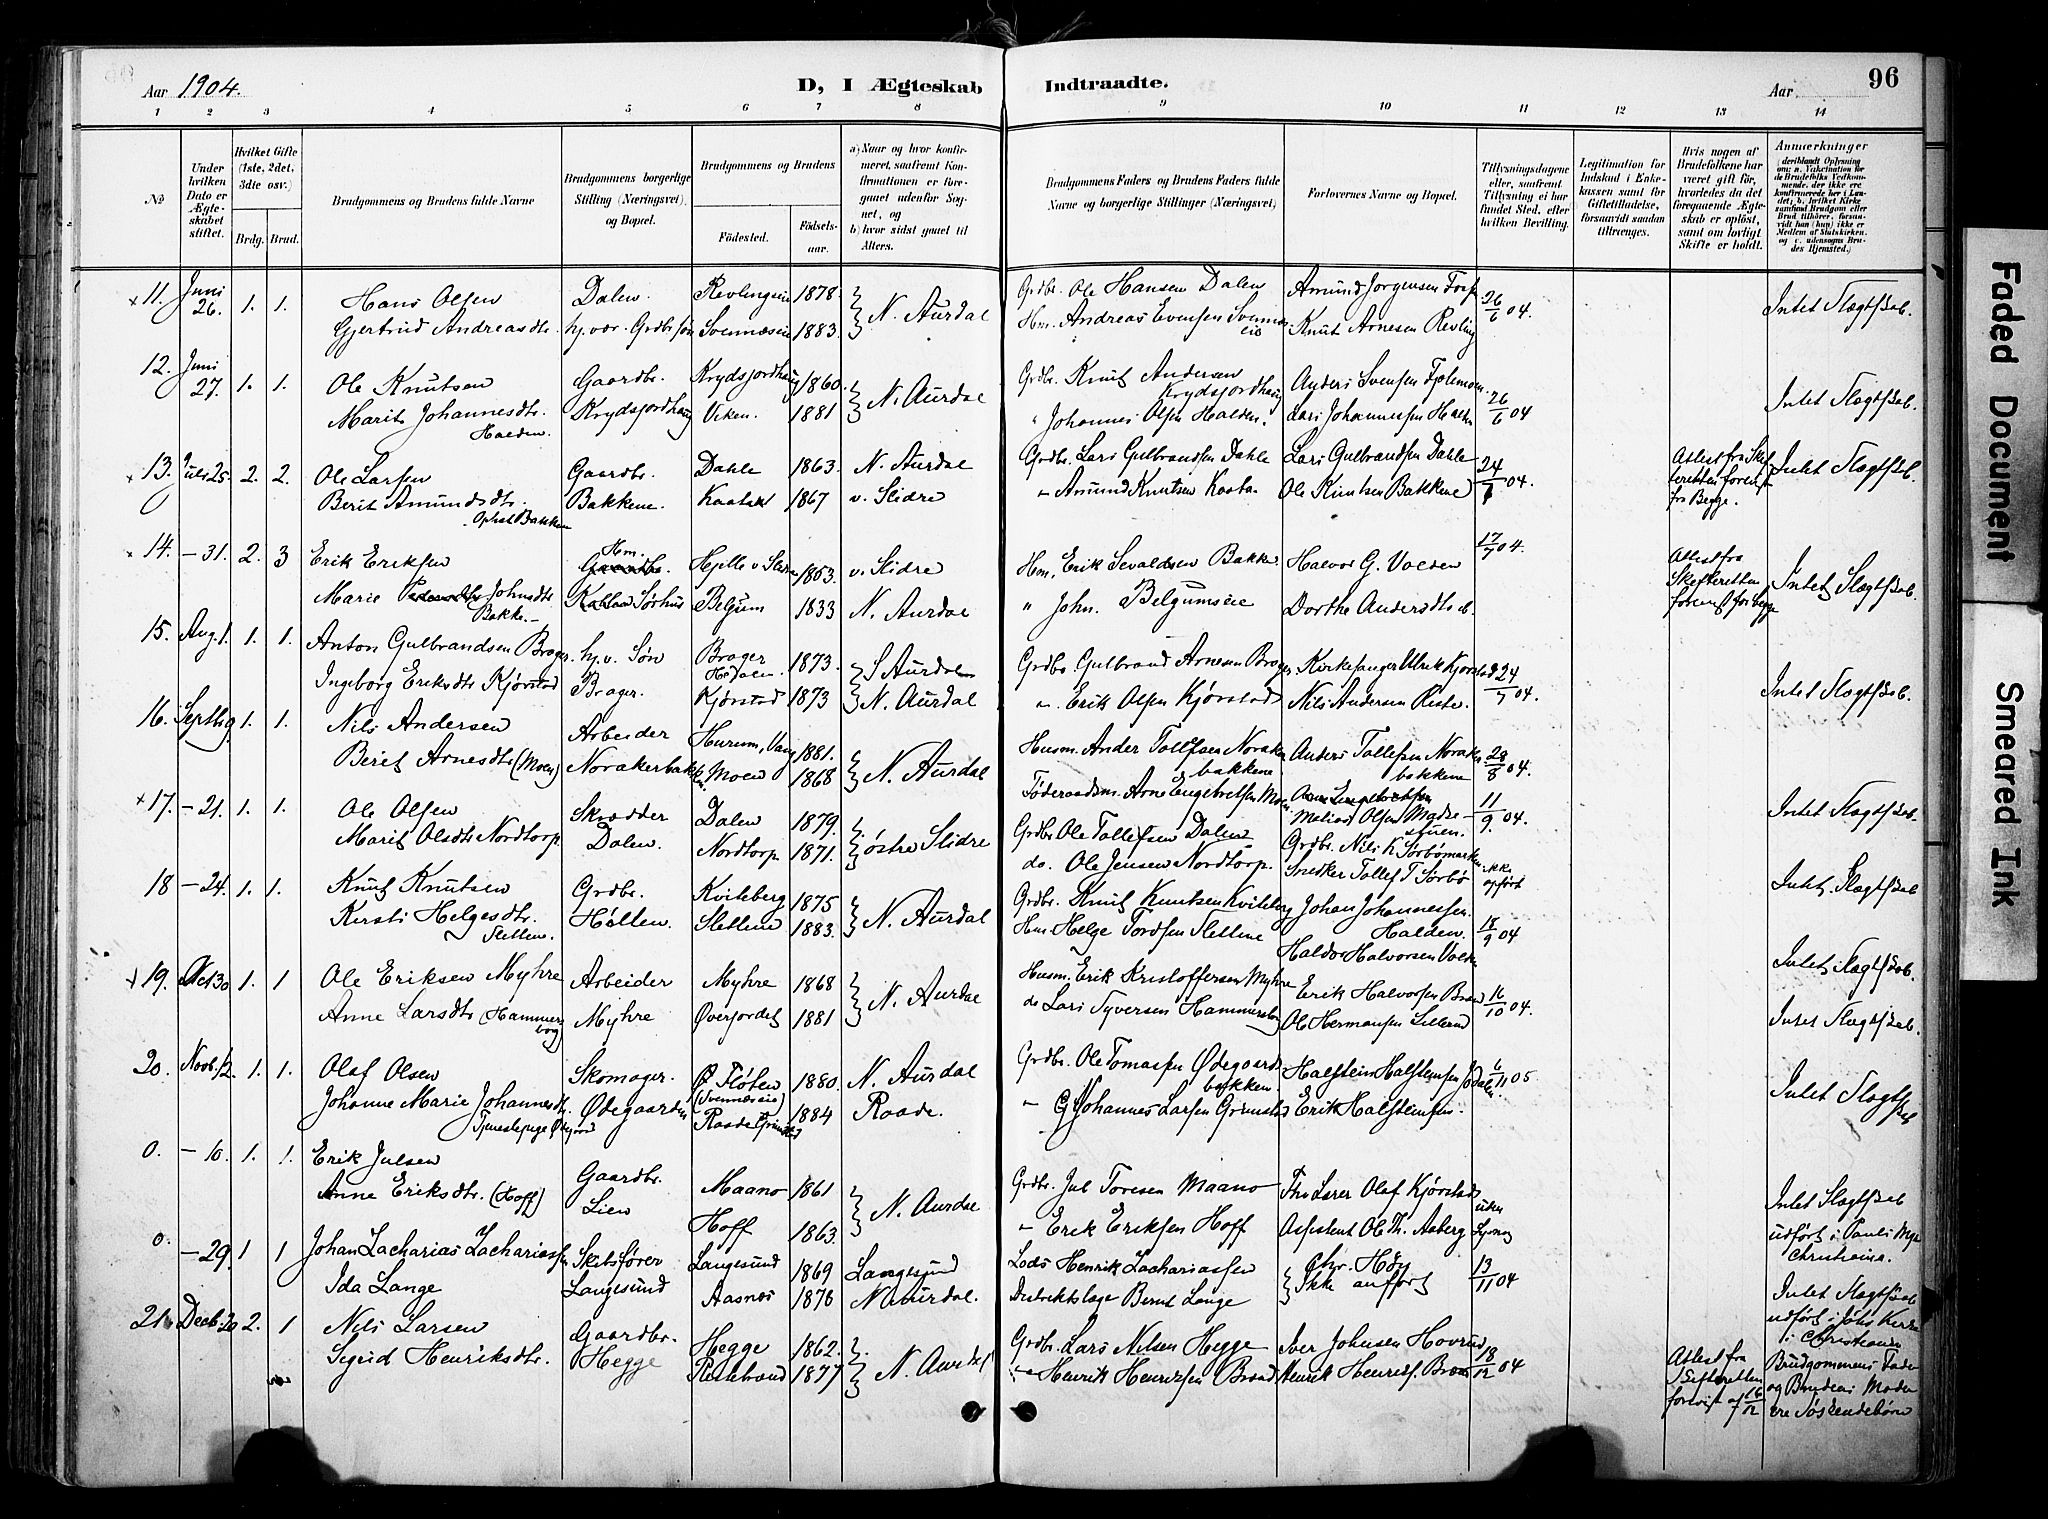 Aar 1904.
D, I Ægteskab Indtraadte.
Aar 96
1 2 3 4 5 6 7 8 9 10 11 12 13 14
No
Under hvilken Dato er Ægteskabet stiftet.
Hvilket Gifte (1ste, 2det, 3die osv.)
Brdg. Brud.
Brudgommens og Brudens fulde Navne
Brudgommens borgerlige Stilling (Næringsvei) og Bopæl.
Brudgommens og Brudens
Fødested. Fødselsaar.
a) Naar og hvor konfirmeret, saafremt Konfirmationen er foregaaet udenfor Sognet, og
b) hvor sidst gaaet til Alters.
Brudgommens Faders og Brudens Faders fulde Navne og borgerlige Stillinger (Næringsvei)
Forlovernes Navne og Bopæl.
Tillysningsdagene eller, saafremt Tillysning ei har fundet Sted, efter hvilken Bevilling.
Legitimation for Indskud i Enkekassen samt for Giftetilladelse, forsaavidt saadan tiltrænges.
Hvis nogen af Brudefolkene har været gift før, hvorledes da det foregaaende Ægteskab er opløst, samt om lovligt Skifte er holdt.
Anmerkninger
11. Juni 26. 1. 1. Hans Olsen Dalen. Revlingseie 1878. N. Aurdal Grdbr. Ole Hansen Dalen Amund Jorgensen 26/6 04. Intet Slægtskab.
Gjertrud Andreasdtr. hj.vær. Grdbr.søn Svennæseie 1883. Hm. Andreas Evensen Svennæseie Knut Arnesen Revling
12. Juni 27. 1. 1. Ole Knutsen Gaardbr. Krydsjordhaug 1860. N. Aurdal Grdbr. Knut Andersen Krydsjordhaug Anders Svensen 26/6 04 Intet Slægtskab.
Marit Johannesdtr. Halden. Krydsjordhaug Viken. 1881 " Johannes Olsen Halden. Lars Johannessen Halden
13. Juli 25. 2. 2. Ole Larsen Gaardbr. Dahle 1863. N. Aurdal Grdbr. Lars Gulbrandsen Dahle Lars Gulbrandsen Dahle 24/ 04. Attest fra Skifteretten forevist fra Begge. Intet Slægtskab.
Berit Amundsdtr. Bakken Bakkene. Kaata 1867 v. Slidre " Amund Knutsen Kaata. Ole Knutsen Bakkene
14. - 31. 2. 3 Erik Eriksen Hm. Hjelle v Slidre 1853. v. Slidre Hm. Erik Sevaldsen Bakke. Halvor G. Volden 17/7 04. Attest fra Skifteretten forevist for begge Intet Slægtskab.
Marie Johnsdtr. Bakke. Sørhus Belgum 1833 N. Aurdal " John. Belgumseie Dorthe Andersdtr. sb.
15. Aug. 1. 1. 1. Anton Gulbrandsen Brager. hj.v. Søn Brager Hedalen. 1873. S Aurdal Grdbr. Gulbrand Arnesen Brager. Kirkesanger Ulrik Kjørstad 24/7 04. Intet Slægtskab.
Ingeborg Eriksdtr Kjørstad Brager. Kjørstad 1873 N. Aurdal " Erik Olsen Kjørstad Nils Andersen Riste.
16. Septb 19. 1. 1. Nils Andersen Arbeider Hurum, Vang 1881. N. Aurdal Husm. Ander Tollefsen Norakerbakkene Anders Tollefsen Norakerbakkene 28/8 04.
Berit Arnesdtr (Moen) Norakerbakken. Moen 1868 Føderaadsm. Arne Engebretsen Moen
17. - 21. 1. 1. Ole Olsen Skrædder Dalen 1879. østre Slidre Grdbr. Ole Tollefsen Dalen Olsen 11/9. 04. Intet Slægtskab.
Marit Olsdtr Nordtorp. Dalen. Nordtorp 1871. do. Ole Jensen Nordtorp. Grdbr. Nils K Sørbømarken. Snedker Tollef T Sørbø ikke opført
18 - 24. 1. 1. Knut Knutsen Grdbr. Kviteberg 1875 N. Aurdal Grdbr. Knut Knutsen Kviteberg Johan Johannessen Halden. 18/9 04 Intet Slægtskab
Kirsti Helgesdtr. Sletten. Høllen. Slettene 1883. Hm Helge Tordsen Slettene Haldor Halvorsen Volden
19. Oct 30 1. 1 Ole Eriksen Myhre Arbeider Myhre 1868 N. Aurdal Husm. Erik Kristoffersen Myhre Erik Halvorsen 16/10 04. Intet Slægtskab.
Anne Larsdtr (Hammerbog) Myhre Øverjordet 1881 do Lars Syversen Hammersbog Ole Hermansen Lillerud Intet Slægtskab.
20. Novb. 12. 1. 1. Olaf Olsen Skomager. Ø Fløten (Svennæseie) 1880. N. Aurdal Grdbr. Ole Tomassen Ødegaardsbakken. Halstein Halsteinsen 6/11 05 Intet Slægtskab
Johanne Marie Johannesdtr. Tjenestepige Ødegaarden Raade 1884 Raade. " Johannes Larsen Grimstad Erik Halsteinsen.
0. - 10. 1. 1. Erik Julsen Gaardbr. Maano 1861 N. Aurdal Grdbr. Jul Toresen Maano Olaf Kjørstad uden Lysning Intet Slægtskab udført i Pauli Christiania.
Anne Eriksdtr. (Hoff) Lien Hoff 1863. " Erik Eriksen Hoff Assistent Ole Th. Aaberg
0. - 29. 1 1 Johan Zacharias Zachariassen Skibsfører Langesund 1869 Langesund Lods Henrik Zachariassen Chr. Høy Ikke anført 13/11 04 Intet Slægtskab udført i Johs Kirke i Christiania
Ida Lange Langesund Aasnes 1878 N. Aurdal. Distriktslæge Bernt Lange
21. Decb. 20 2. 1 Nils Larsen Gaardbr. Hegge 1862. N. Aurdal Grdbr. Lars Nilsen Hegge Iver Johnsen Hovrud 18/12 04 Attest fra Skifteretten forevist af 16/12 Brudgommens Fader og Brudens Moder ere Søskendebørn
Sigrid Henriksdtr. Hegge Ristebrand 1877 " Henrik Henriksen Brand Henrik Henriks.
Faded Document
Smeared Ink